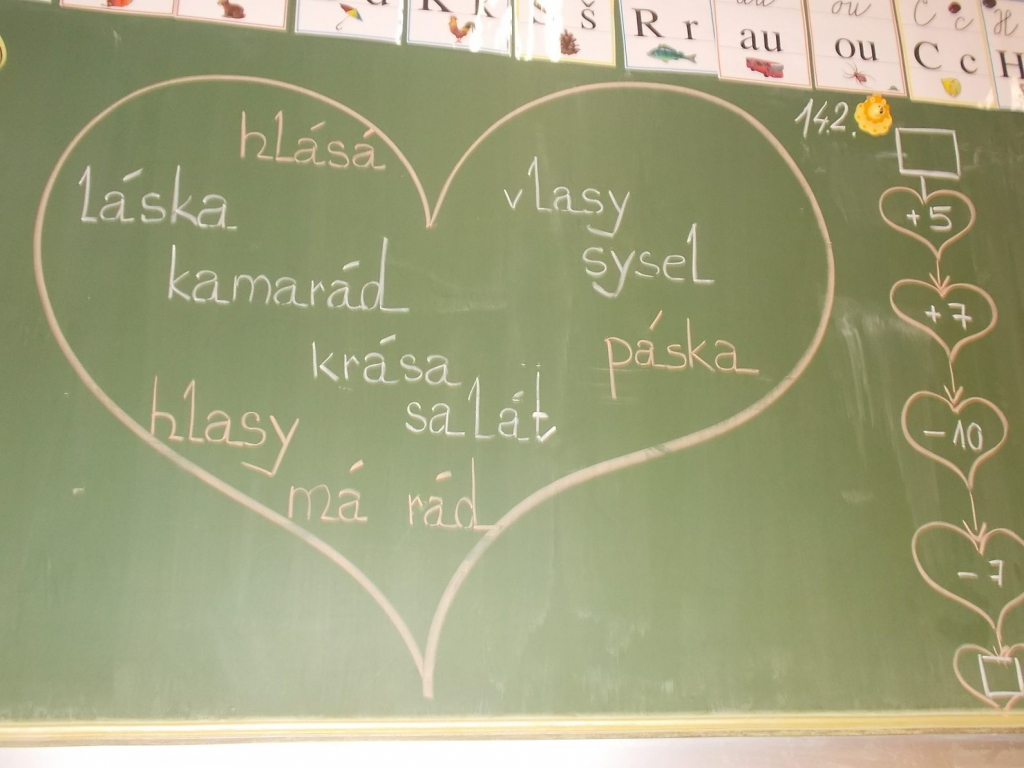 K k
Š š
R r
au
au
ou
ou
C c
C c
H
H
14.2.
hlásá
láska
vlasy
kamarád
sysel
krása
páska
salát
hlasy
má rád
+5
+7
-10
-7